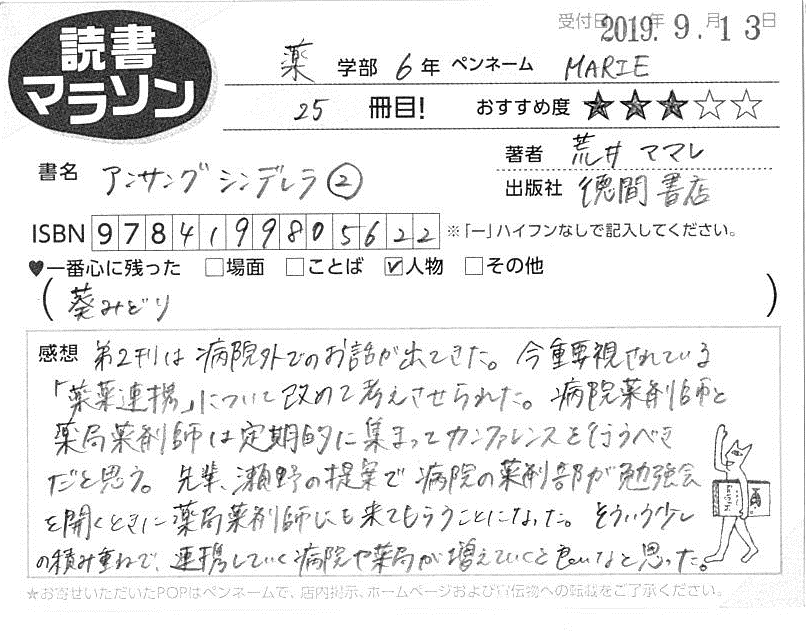 受付日 2019年 9月 13日
読書
マラソン
薬 学部 6 年 ペンネーム MARIE
25 冊目! おすすめ度 ★★★☆☆
書名 アンサングシンデレラ②
著者 荒井ママレ
出版社 徳間書店
ISBN 9784199805622 ※「ー」ハイフンなしで記入してください。
♥一番心に残った □場面 □ことば ☑人物 □その他
(葵みどり)
感想 第2刊は病院外でのお話が出てきた。今重要視されている
「薬薬連携」について改めて考えさせられた。病院薬剤師と
薬局薬剤師は定期的に集まってカンファレンスを行うべき
だと思う。先輩、瀬野の提案で病院の薬剤部が勉強会
を開くときに薬局薬剤師にも来てもらうことになった。そういう少し
の積み重ねで、連携していく病院や薬局が増えていくと良いなと思った。
★お寄せいただいたPOPはペンネームで、店内掲示、ホームページおよび宣伝物への転載をご了承ください。